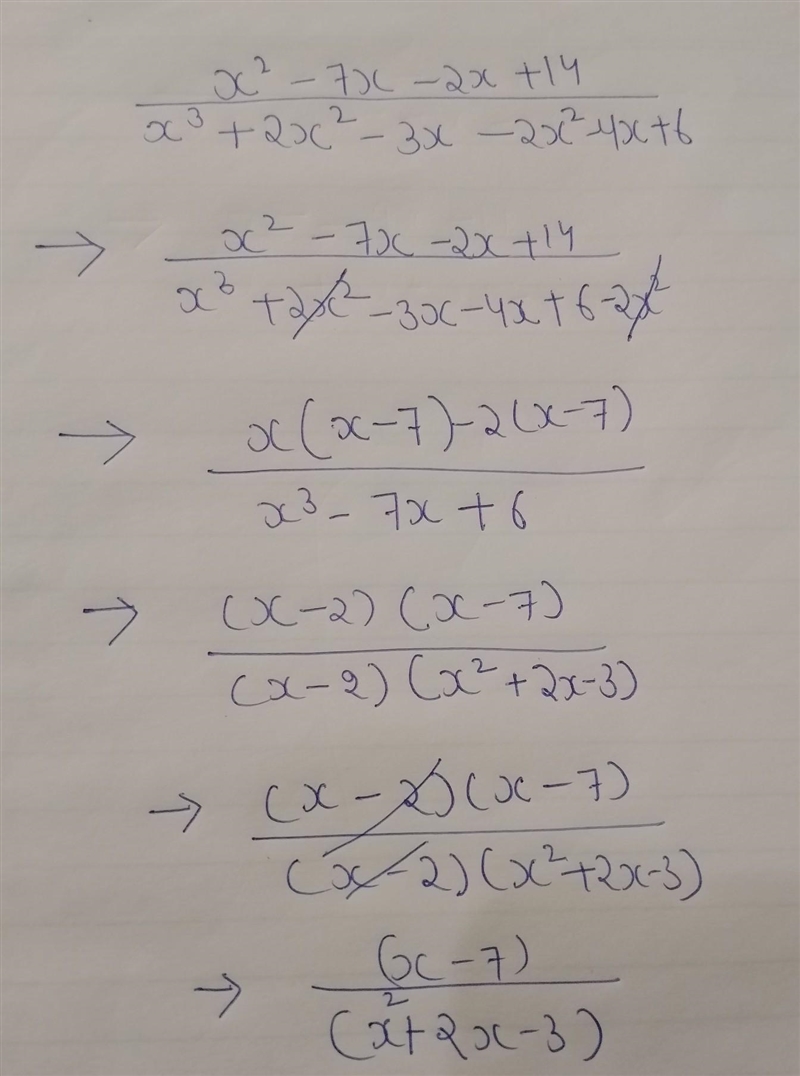 x² - 7x - 2x + 14
x³ + 2x² - 3x - 2x² - 4x + 6
→ x² - 7x - 2x + 14
x³ + 2x² - 3x - 4x + 6 - 2x²
→ x(x - 7) - 2(x - 7)
x³ - 7x + 6
→ (x - 2) (x - 7)
(x - 2) (x² + 2x - 3)
→ (x - 2)(x - 7)
(x - 2)(x² + 2x - 3)
→ (x - 7)
(x² + 2x - 3)